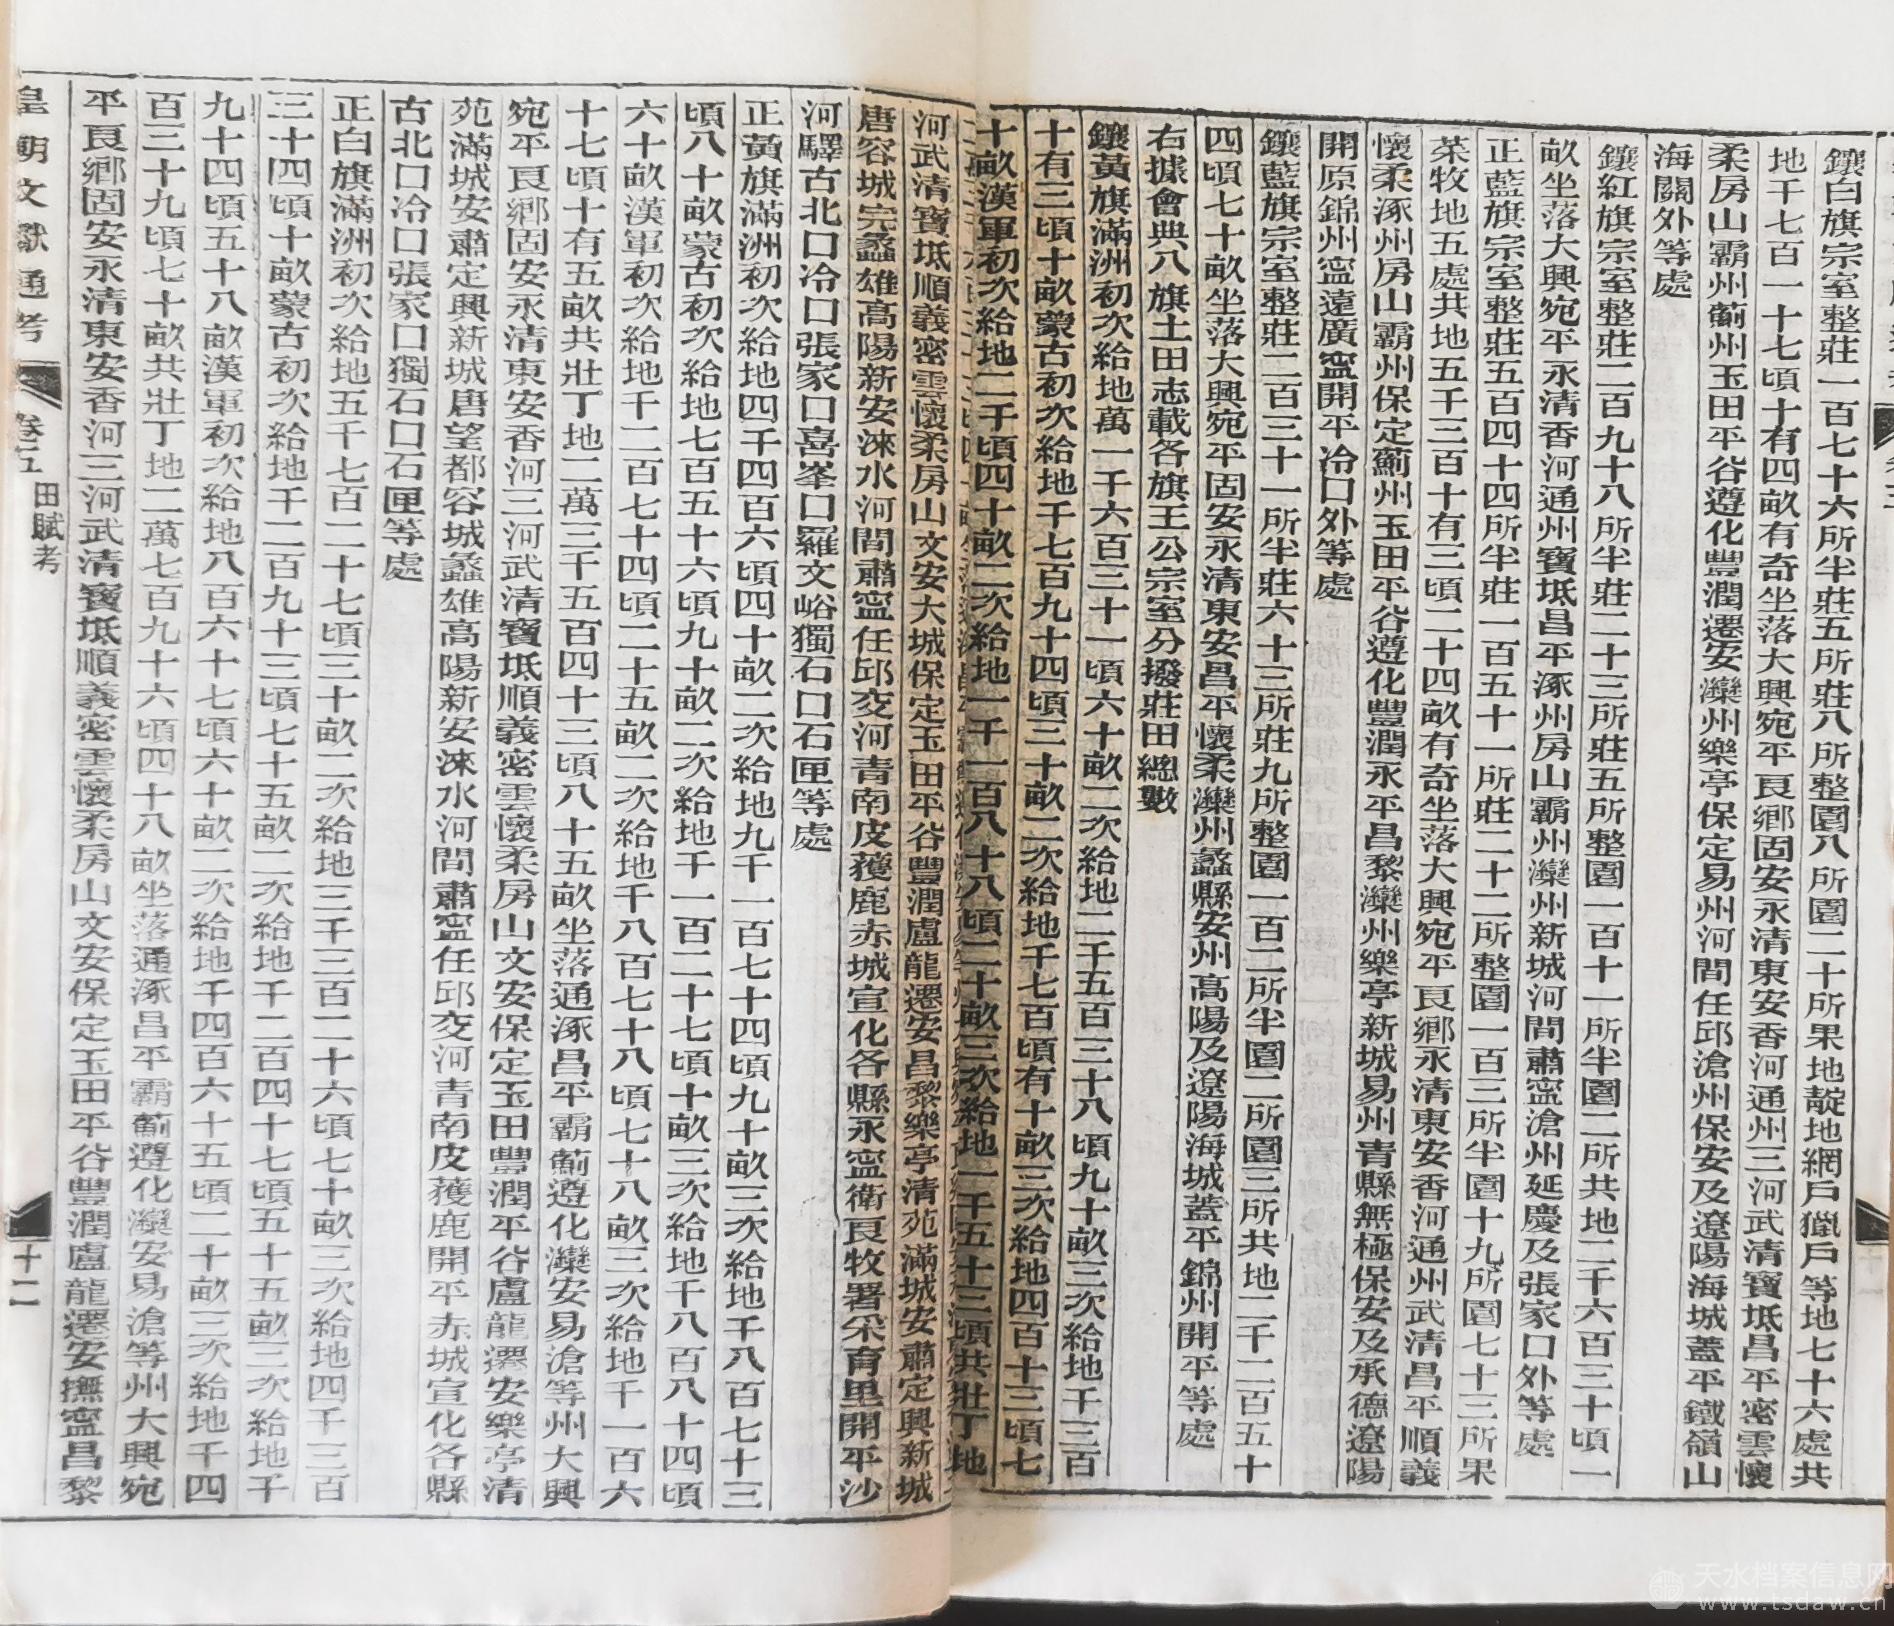 鑲白旗宗室整莊一百七十六所半莊五所莊八所整園八所園二十所果地靛地網戶獵戶等地七十六處共
地千七百一十七頃十有四畝有奇坐落大興宛平良鄉固安永清東安香河通州三河武清寶坻昌平密雲懷
柔房山霸州薊州玉田平谷遵化豐潤遷安灤州樂亭保定易州河間任邱滄州保安及遼陽海城蓋平鐵嶺山
海關外等處
鑲紅旗宗室整莊二百九十八所半莊二十三所莊五所整園一百十一所半園二所共地二千六百三十頃一
畝坐落大興宛平永清香河通州寶坻昌平涿州房山霸州灤州新城河間肅寧滄州延慶及張家口外等處
正藍旗宗室整莊五百四十四所半莊一百五十一所莊二十二所整園一百三所半園十九所園七十三所果
菜牧地五處共地五千三百十有三頃二十四畝有奇坐落大興宛平良鄉永清東安香河通州武清昌平順義
懷柔涿州房山霸州保定薊州玉田平谷遵化豐潤永平昌黎灤州樂亭新城易州青縣無極保安及承德遼陽
開原錦州寧遠廣寧開平冷口外等處
鑲藍旗宗室整莊二百三十一所半莊六十三所莊九所整園一百二所半園二所園三所共地二千二百五十
四頃七十畝坐落大興宛平固安永清東安昌平懷柔灤州蠡縣安州高陽及遼陽海城蓋平錦州開平等處
右據會典八旗土田志載各旗王公宗室分撥莊田總數
鑲黃旗滿洲初次給地萬一千六百三十一頃六十畝二次給地二千五百三十八頃九十畝三次給地千三百
十有三頃十畝蒙古初次給地千七百九十四頃三十畝二次給地千七百頃有十畝三次給地四百十三頃七
十畝漢軍初次給地二千頃四十畝二次給地一千一百八十八頃二十畝三次給地一千五十二頃共壯丁地
河武清寶坻順義密雲懷柔房山文安大城保定玉田平谷豐潤盧龍遷安昌黎樂亭清苑滿城安肅定興新城
唐容城完蠡雄高陽新安淶水河間肅寧任邱交河青南皮獲鹿赤城宣化各縣永寧衛良牧署采育里開平沙
河驛古北口冷口張家口喜峯口羅文峪獨石口石匣等處
正黃旗滿洲初次給地四千四百六頃四十畝二次給地九千一百七十四頃九十畝三次給地千八百七十三
頃八十畝蒙古初次給地七百五十六頃九十畝二次給地千一百二十七頃十畝三次給地千八百八十四頃
六十畝漢軍初次給地千二百七十四頃二十五畝二次給地千八百七十八頃七十八畝三次給地千一百六
十七頃十有五畝共壯丁地二萬三千五百四十三頃八十五畝坐落通涿昌平霸薊遵化灤安易滄等州大興
宛平良鄉固安永清東安香河三河武清寶坻順義密雲懷柔房山文安保定玉田豐潤平谷盧龍遷安樂亭清
苑滿城安肅定興新城唐望都容城蠡雄高陽新安淶水河間肅寧任邱交河青南皮獲鹿開平赤城宣化各縣
古北口冷口張家口獨石口石匣等處
正白旗滿洲初次給地五千七百二十七頃三十畝二次給地三千三百二十六頃七十畝三次給地四千三百
三十四頃十畝蒙古初次給地千二百九十三頃七十五畝二次給地千二百四十七頃五十五畝三次給地千
九十四頃五十八畝漢軍初次給地八百六十七頃六十畝二次給地千四百六十五頃二十畝三次給地千四
百三十九頃七十畝共壯丁地二萬七百九十六頃四十八畝坐落通涿昌平霸薊遵化灤安易滄等州大興宛
平良鄉固安永清東安香河三河武清寶坻順義密雲懷柔房山文安保定玉田平谷豐潤盧龍遷安撫寧昌黎
皇朝文獻通考 卷五 田賦考 十二
天水档案信息网
www.tsdaw.cn